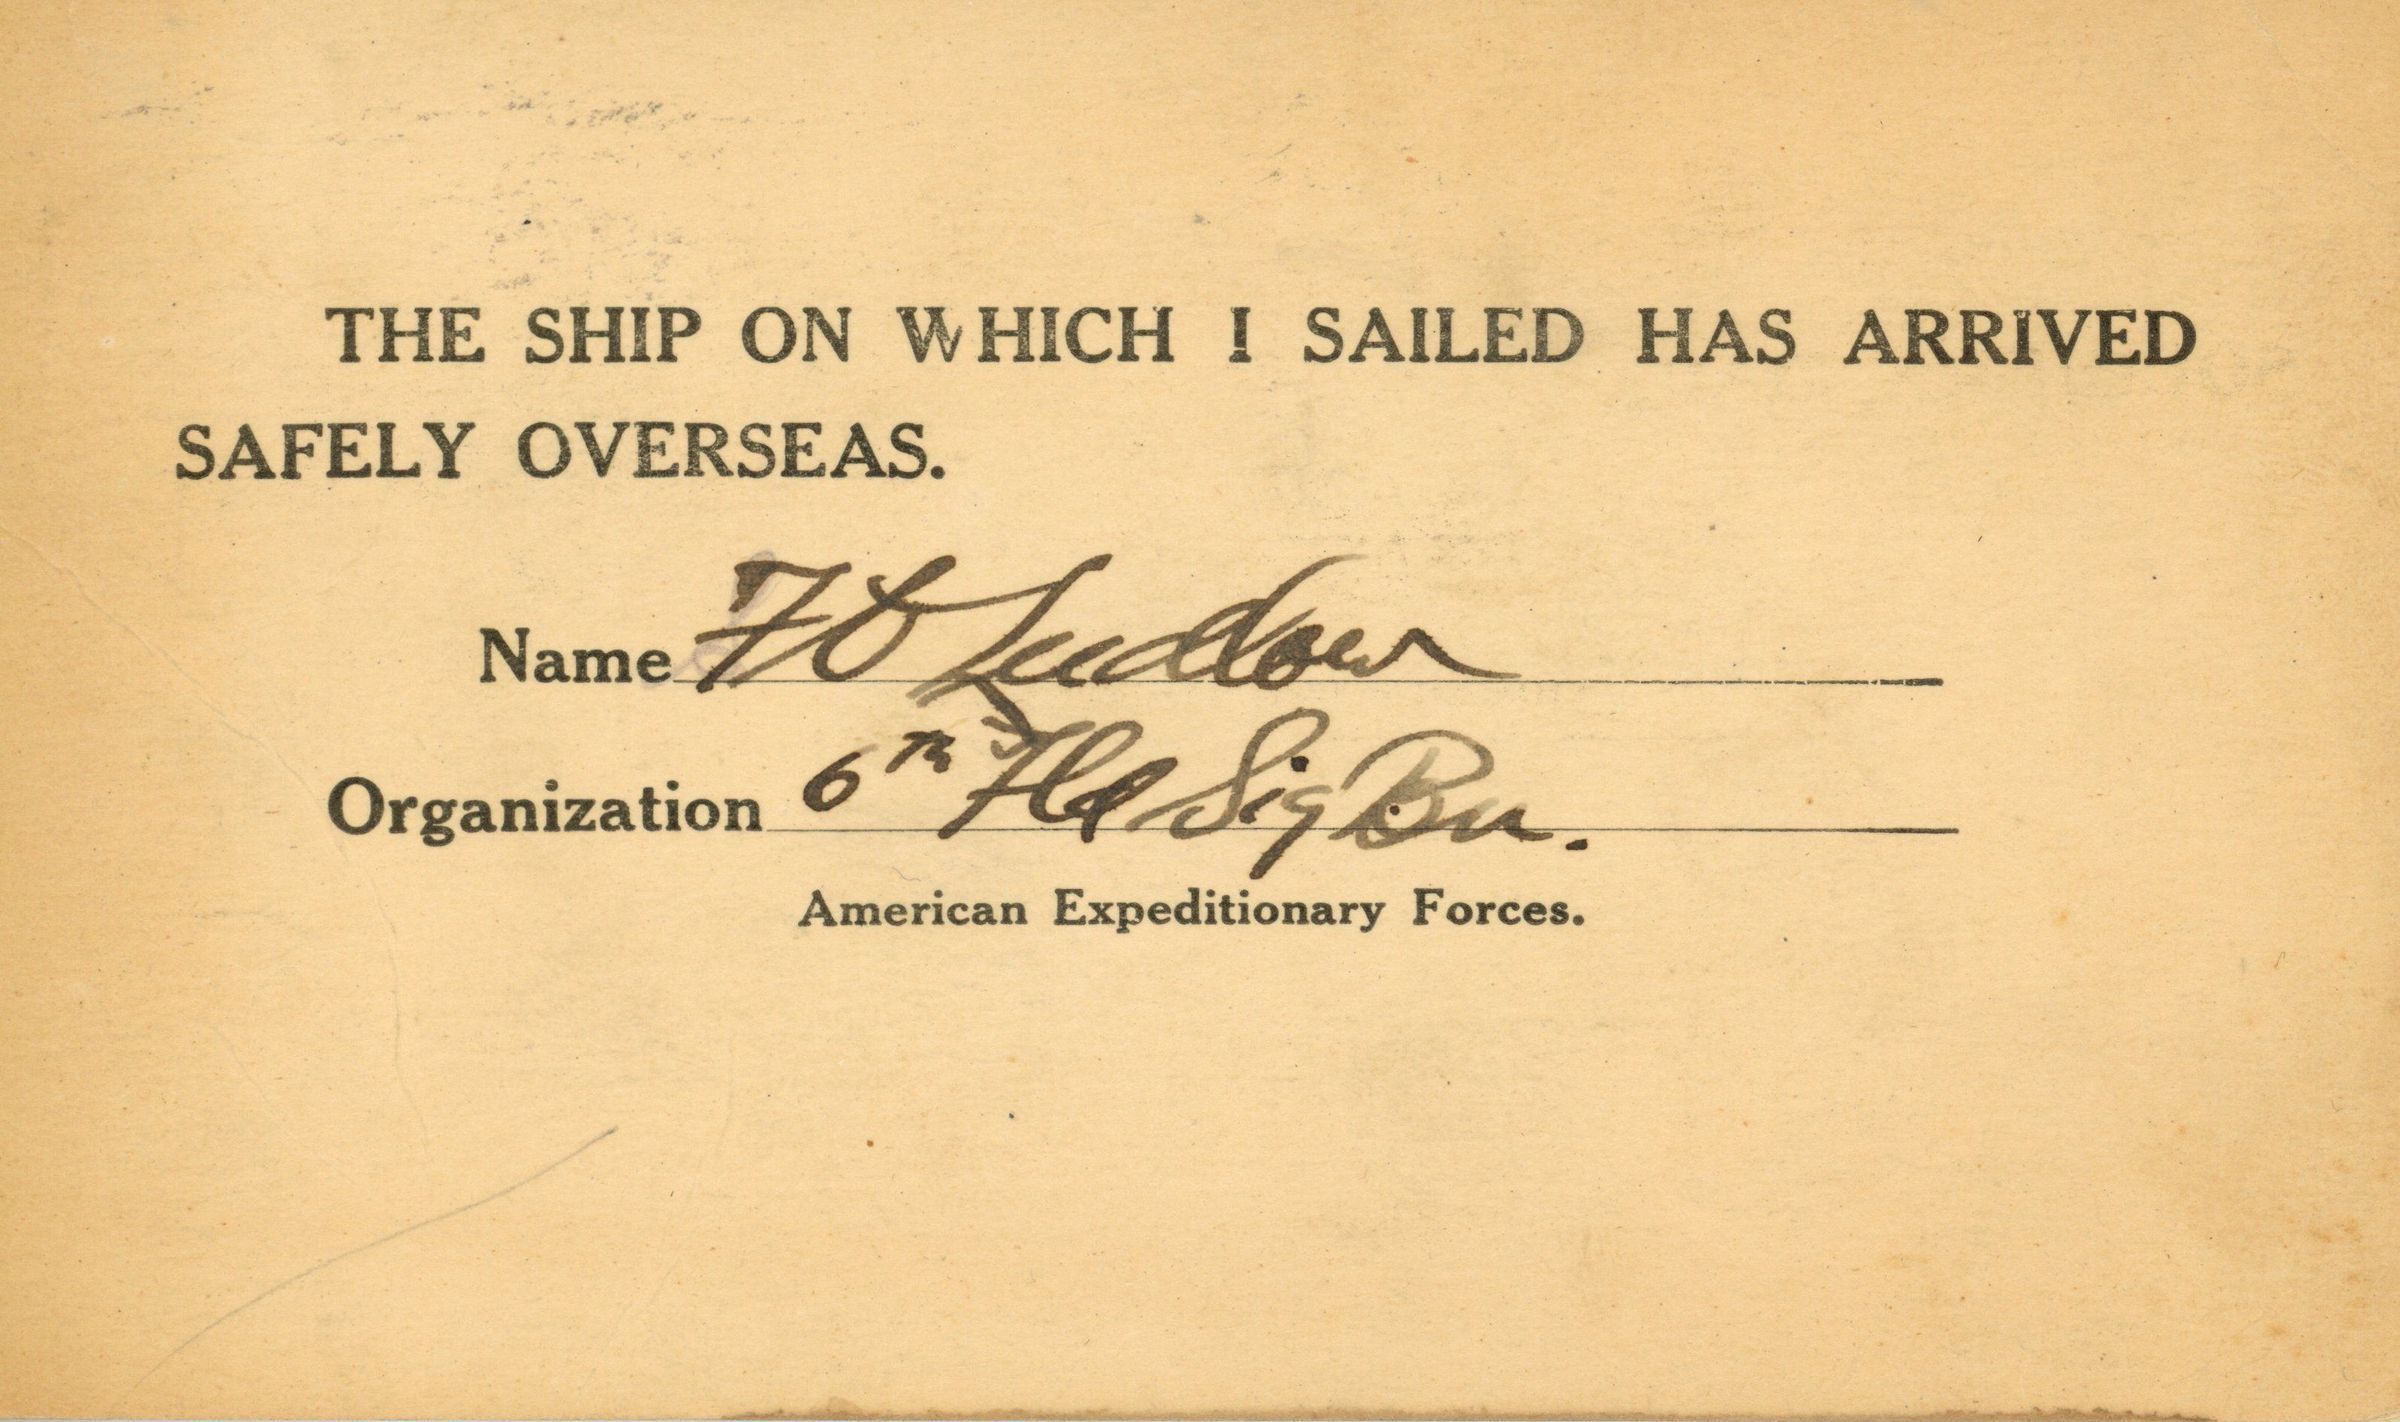 THE SHIP ON WHICH I SAILED HAS ARRIVED
SAFELY OVERSEAS.
Name F O Ludlow
Organization 6th Fld Sig Bn.
American Expeditionary Forces.